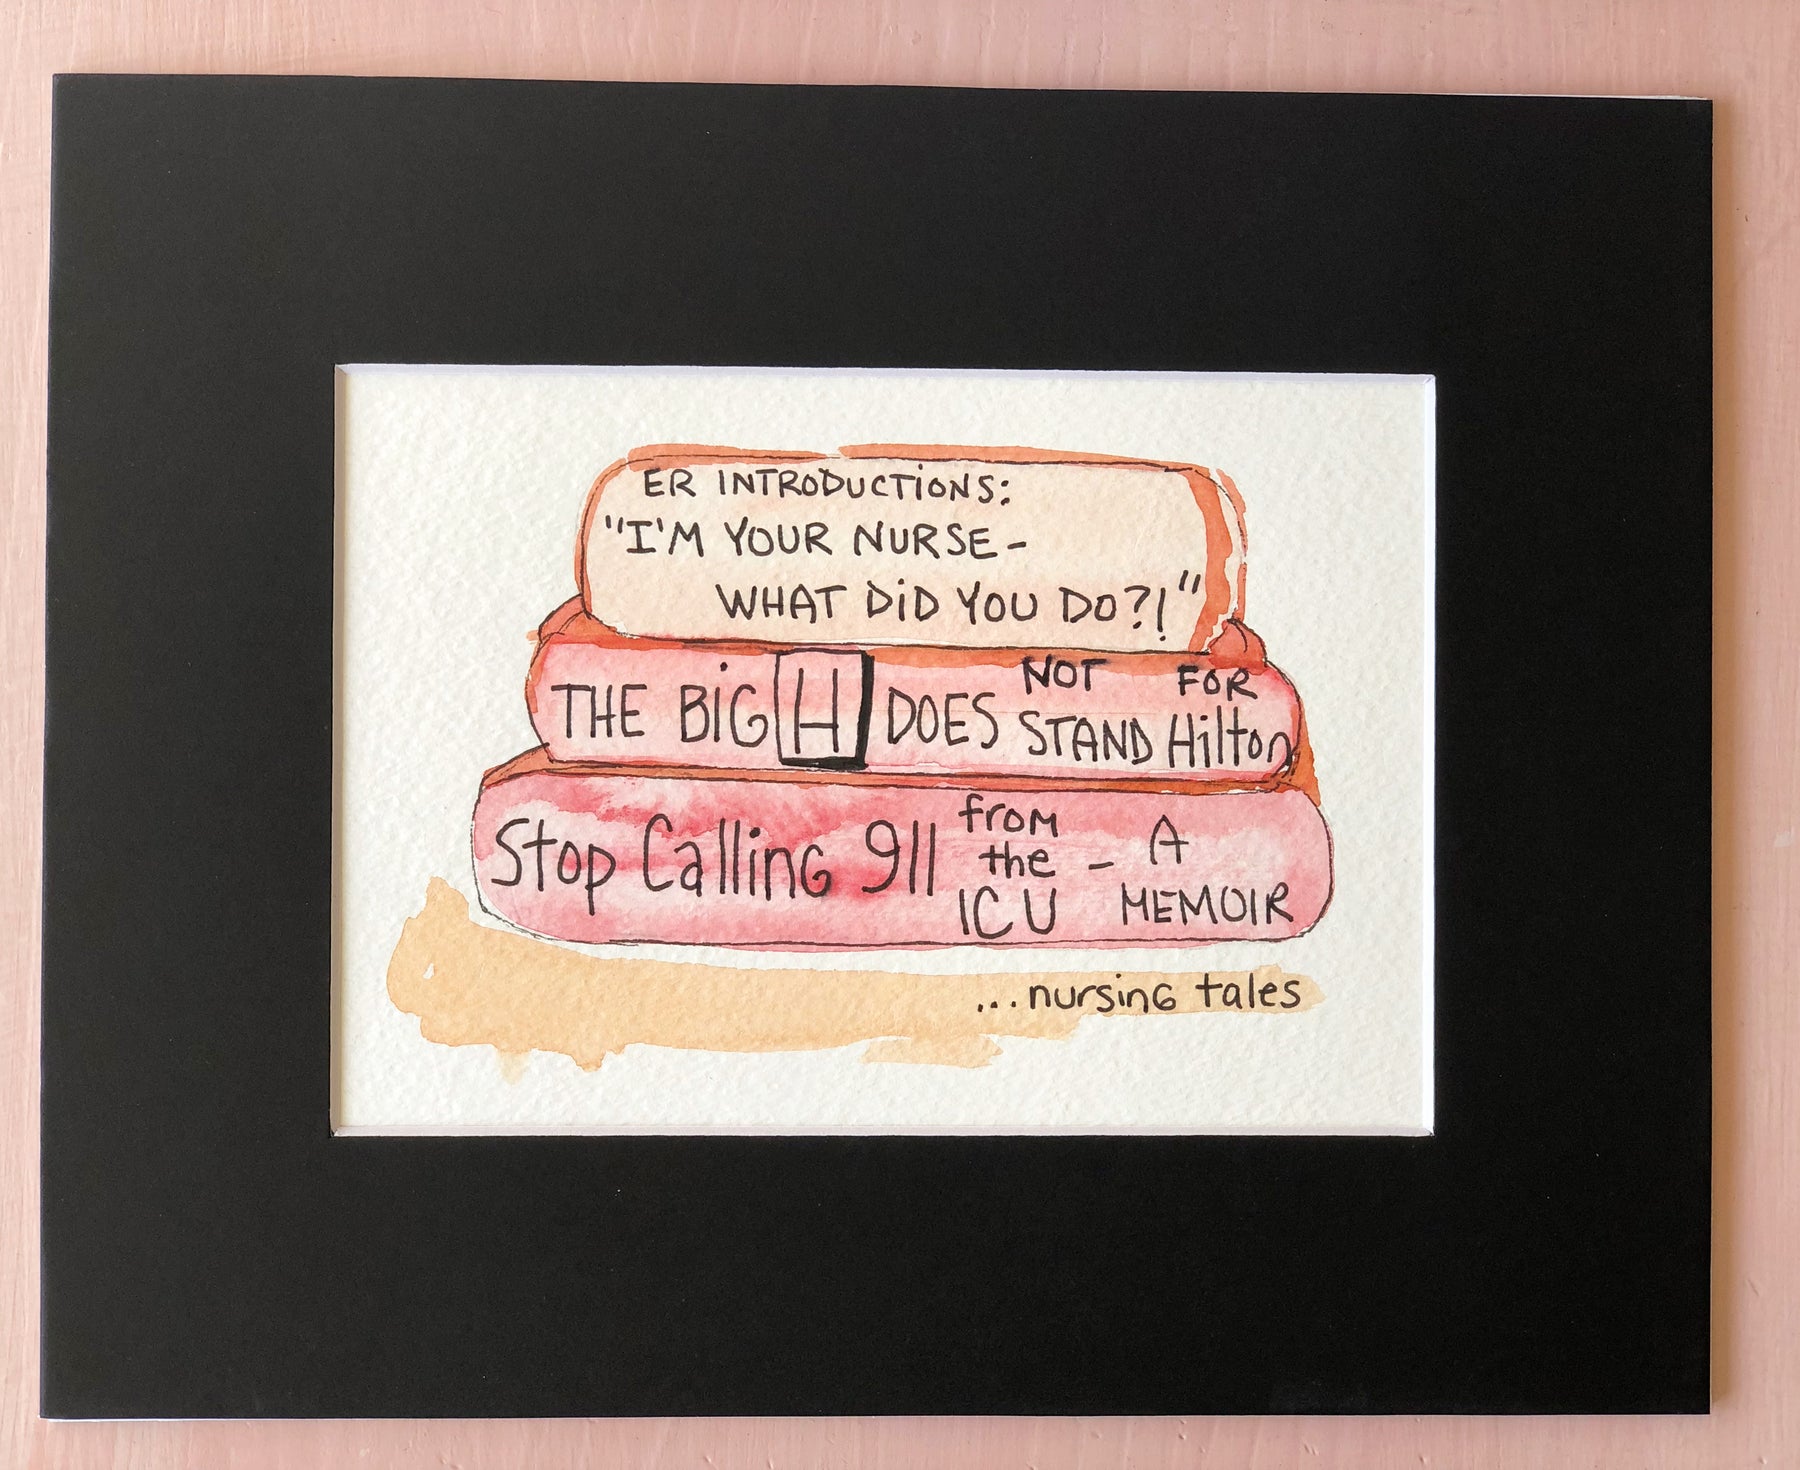 ER INTRODUCTIONS:
"I'M YOUR NURSE-
WHAT DID YOU DO?!"
THE BIG H DOES NOT STAND FOR Hilton
Stop Calling 911 from the ICU - A MEMOIR
...nursing tales